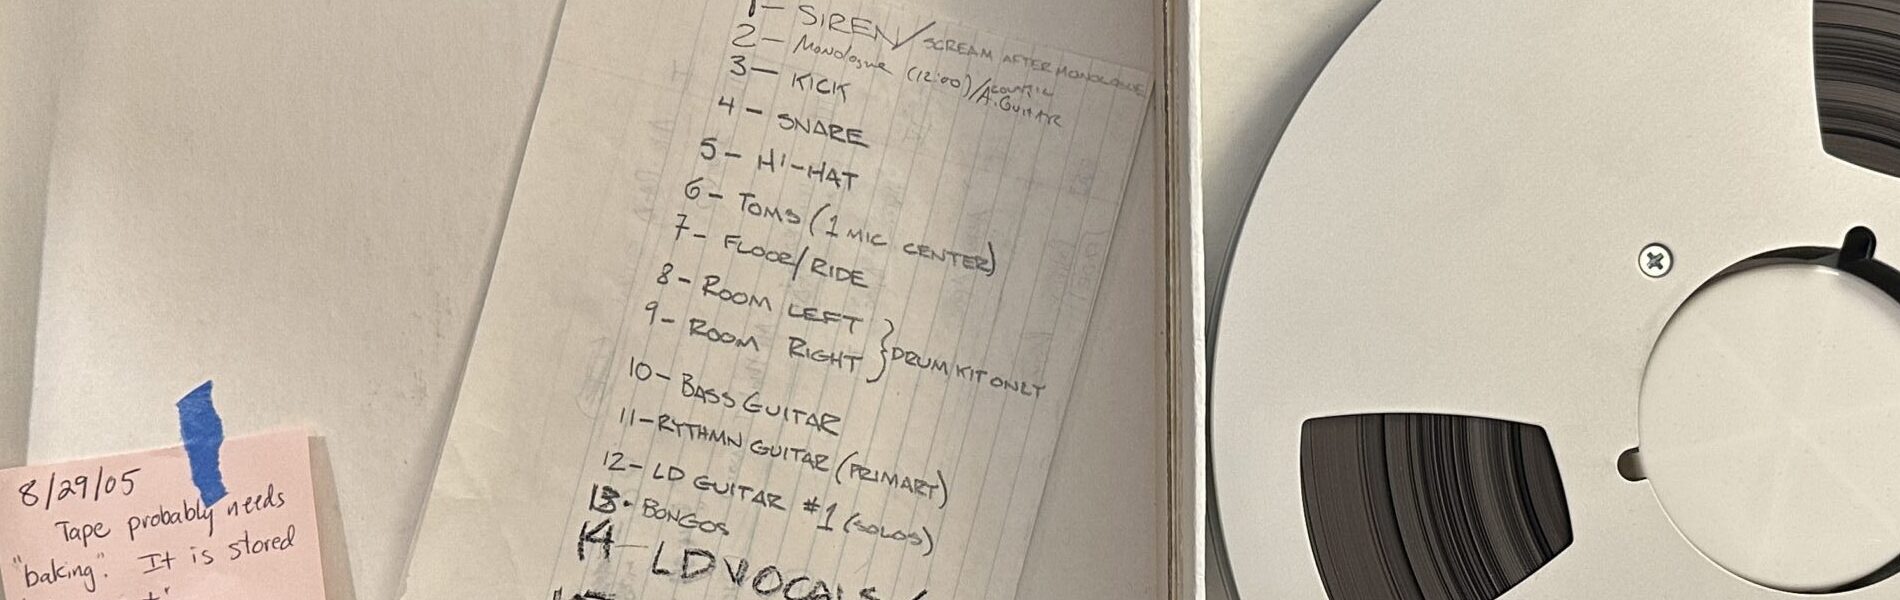 1- SIREN/SCREAM AFTER MONOLOGUE
2- Monologue (12:00)/ACOUSTIC A. GUITAR
3- KICK
4- SNARE
5- HI-HAT
6- TOMS (1 MIC CENTER)
7- FLOOR/RIDE
8- ROOM LEFT
9- ROOM RIGHT } DRUM KIT ONLY
10- BASS GUITAR
11- RYTHMN GUITAR (PRIMARY)
12- LD GUITAR #1 (SOLOS)
13- BONGOS
14- LD VOCALS/
8/29/05
Tape probably needs
"baking". It is stored